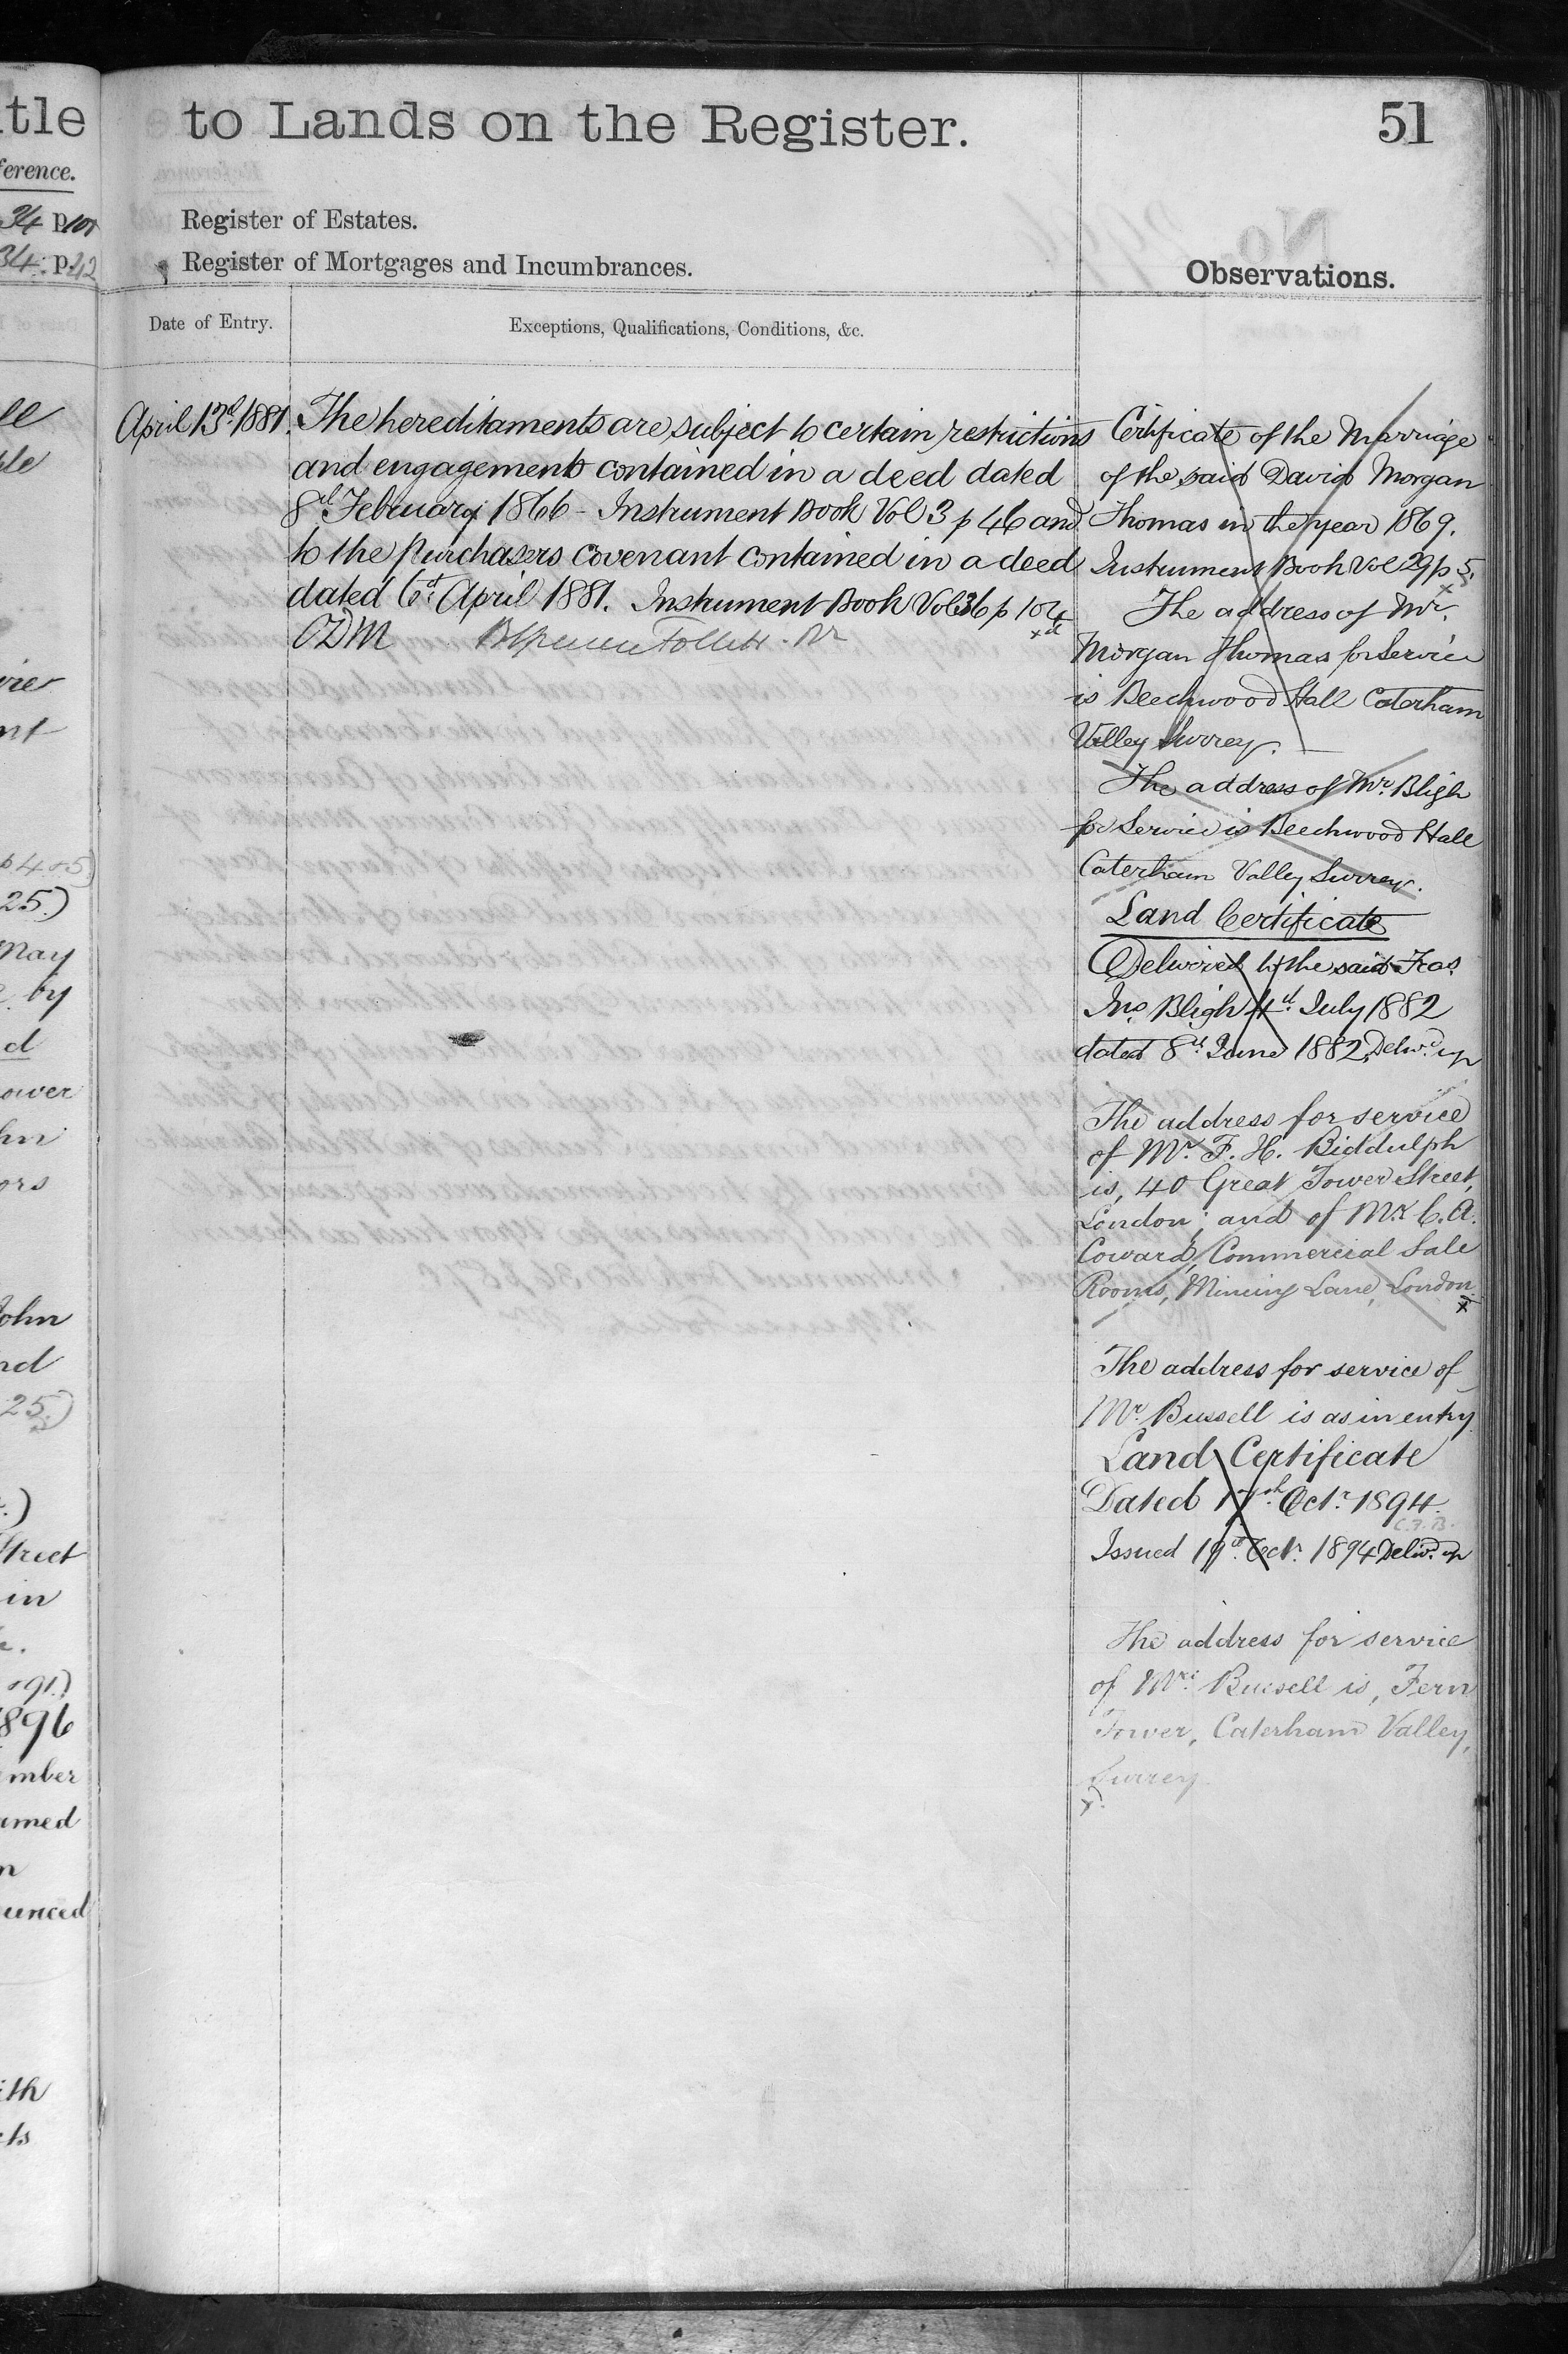 tle
ference.
34 p 107
34. p. 42
ll
ple
nt
p 4 o 5)
25.)
May
by
d
ower
hn
ors
John
nd
25.)
Street
in
o 91.)
1896
ember
amed
n
ounced
ith
cts
to Lands on the Register.
51
Register of Estates.
Register of Mortgages and Incumbrances.
Observations.
Date of Entry.
Exceptions, Qualifications, Conditions, &c.
April 13th 1881.
The hereditaments are subject to certain restrictions
and engagements contained in a deed dated
8th February 1866 - Instrument Book Vol 3 p 46 and
to the Purchasers covenant contained in a deed
dated 6th April 1881. Instrument Book Vol 36 p 104
ODM Follett
Certificate of the Marriage
of the said David Morgan
Thomas in the year 1869.
Instrument Book Vol 29 p 5.
The address of Mr.
Morgan Thomas for Service
is Beechwood Hall Caterham
Valley Surrey.
The address of Mr. Bligh
for Service is Beechwood Hall
Caterham Valley Surrey.
Land Certificate
Delivered to the said Fras.
Jno. Bligh 4th July 1882
dated 8th June 1882. Delivd. up
The address for service
of Mr. F. H. Biddulph
is, 40 Great Tower Street,
London; and of Mr. C. A.
Coward, Commercial Sale
Rooms, Mincing Lane, London.
The address for service of
Mr. Bussell is as in entry.
Land Certificate
Dated 17th Octr. 1894.
C.F.B.
Issued 19th Octr. 1894 Delivd. up
The address for service
of Mrs. Bussell is, Fern
Tower, Caterham Valley,
Surrey